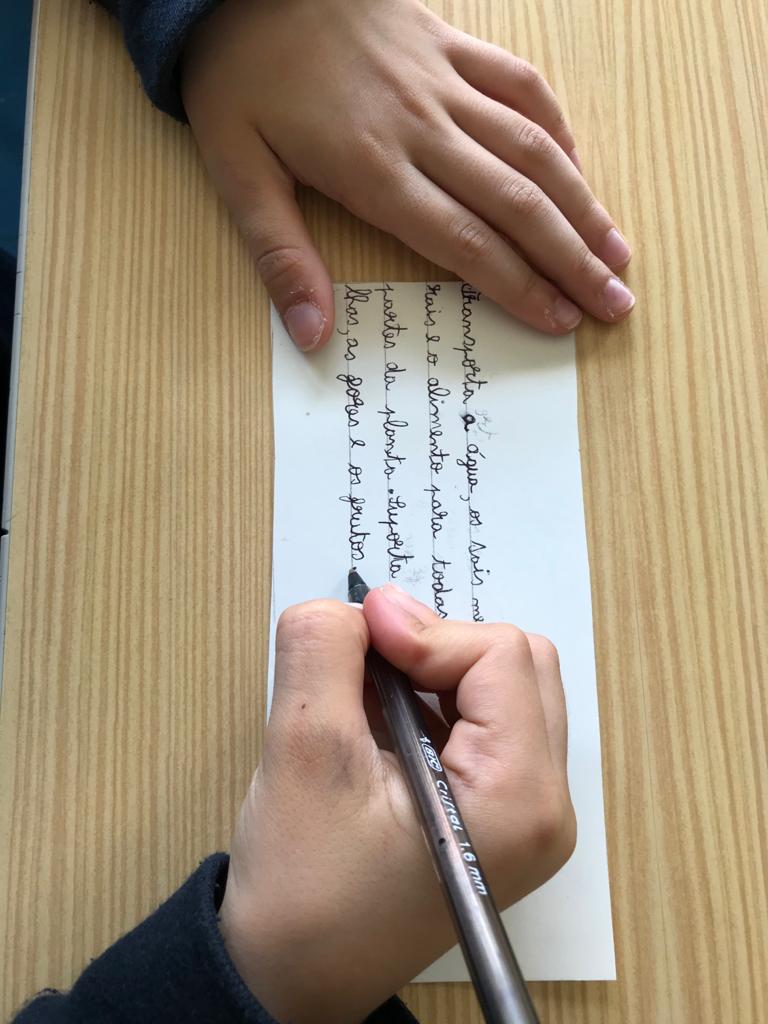 Transporta a água, os sais
rais e o alimento para todas
partes da planta. Suporta
lhas, as flores e os frutos
BIC Cristal 1.6 mm